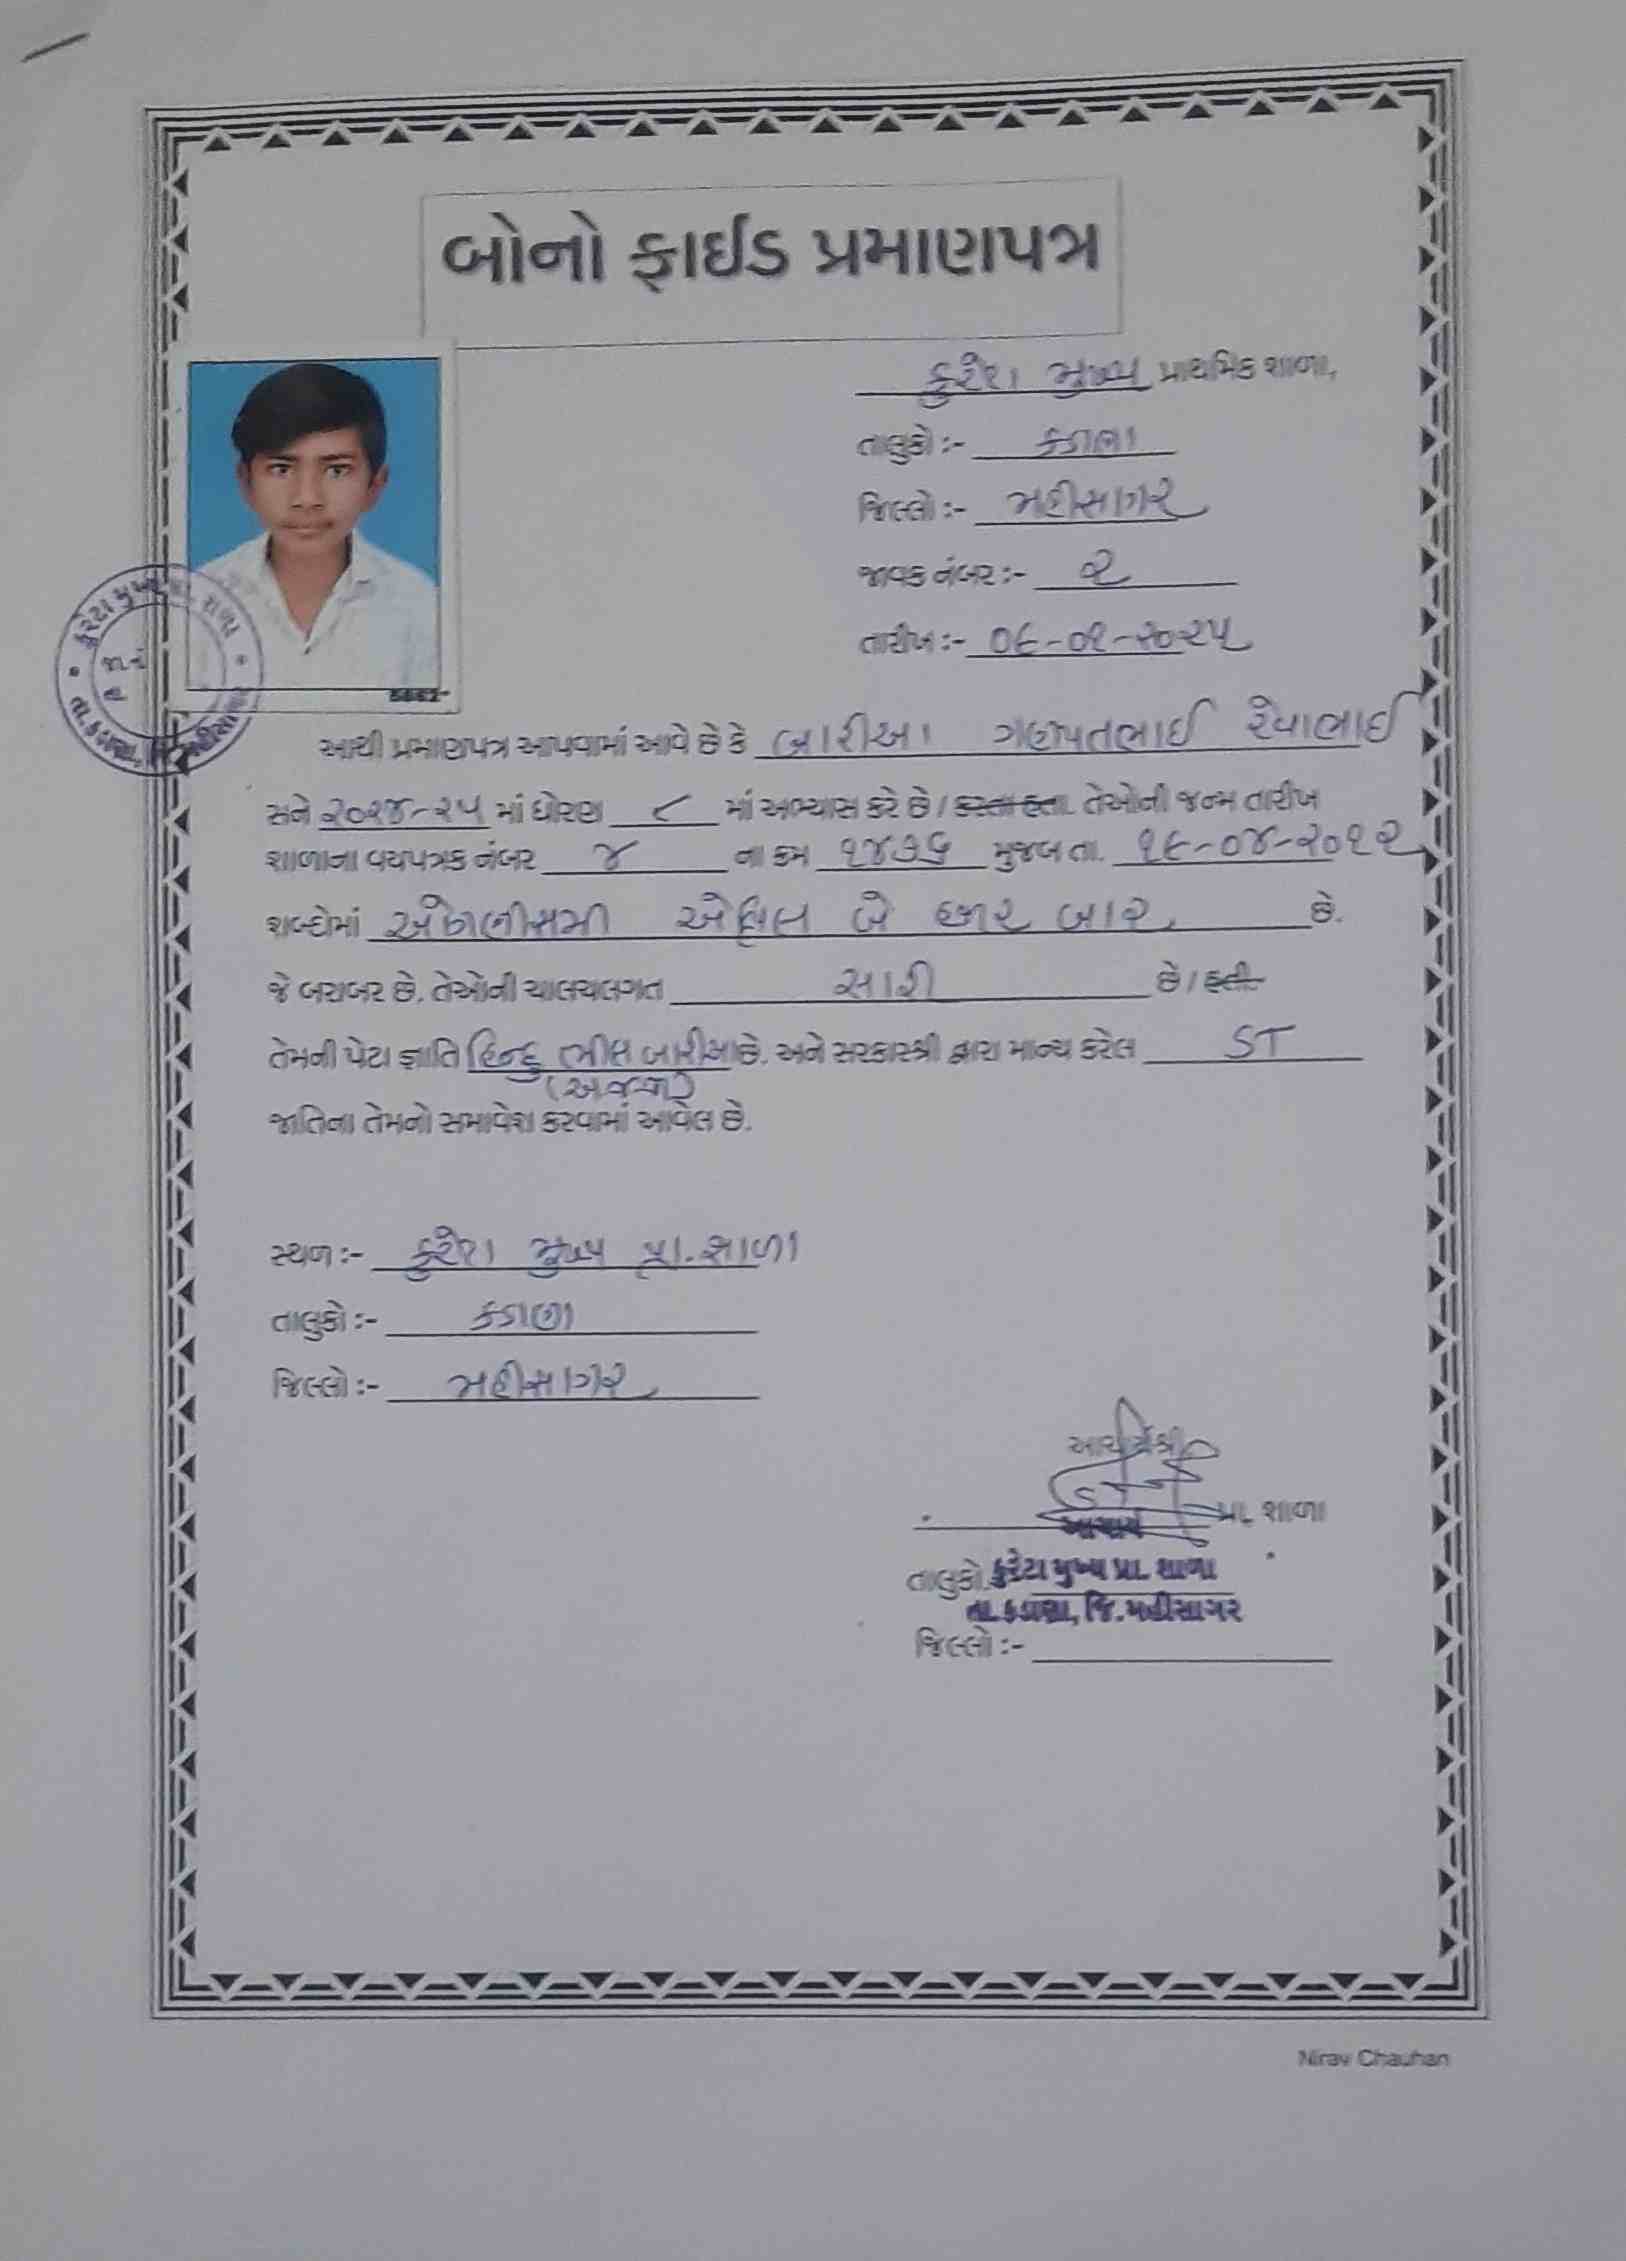 બોનો ફાઈડ પ્રમાણપત્ર
કુરેટા મુખ્ય પ્રાથમિક શાળા,
તાલુકો :- કડાણા
જિલ્લો :- મહીસાગર
જાવક નંબર :- ૨
તારીખ :- ૦૬-૦૧-૨૦૨૫
કુરેટા મુખ્ય પ્રા. શાળા
જા.નં
તા. કડાણા, જિ. મહીસાગર
આથી પ્રમાણપત્ર આપવામાં આવે છે કે બારીઆ ગણપતભાઈ રેવાભાઈ
સને ૨૦૨૪-૨૫ માં ધોરણ ૮ માં અભ્યાસ કરે છે / કરતા હતા. તેઓની જન્મ તારીખ
શાળાના વયપત્રક નંબર ૪ ના ક્રમ ૧૪૭૬ મુજબ તા. ૧૯-૦૪-૨૦૧૨
શબ્દોમાં ઓગણીસમી એપ્રિલ બે હજાર બાર છે.
જે બરાબર છે. તેઓની ચાલચલગત સારી છે / હતી.
તેમની પેટા જ્ઞાતિ હિન્દુ ભીલ બારીઆ છે. અને સરકારશ્રી દ્વારા માન્ય કરેલ ST
(અજજા)
જાતિના તેમનો સમાવેશ કરવામાં આવેલ છે.
સ્થળ :- કુરેટા મુખ્ય પ્રા. શાળા
તાલુકો :- કડાણા
જિલ્લો :- મહીસાગર
આચાર્યશ્રી
આચાર્ય પ્રા. શાળા
તાલુકો. કુરેટા મુખ્ય પ્રા. શાળા
તા. કડાણા, જિ. મહીસાગર
જિલ્લો :-
Nirav Chauhan